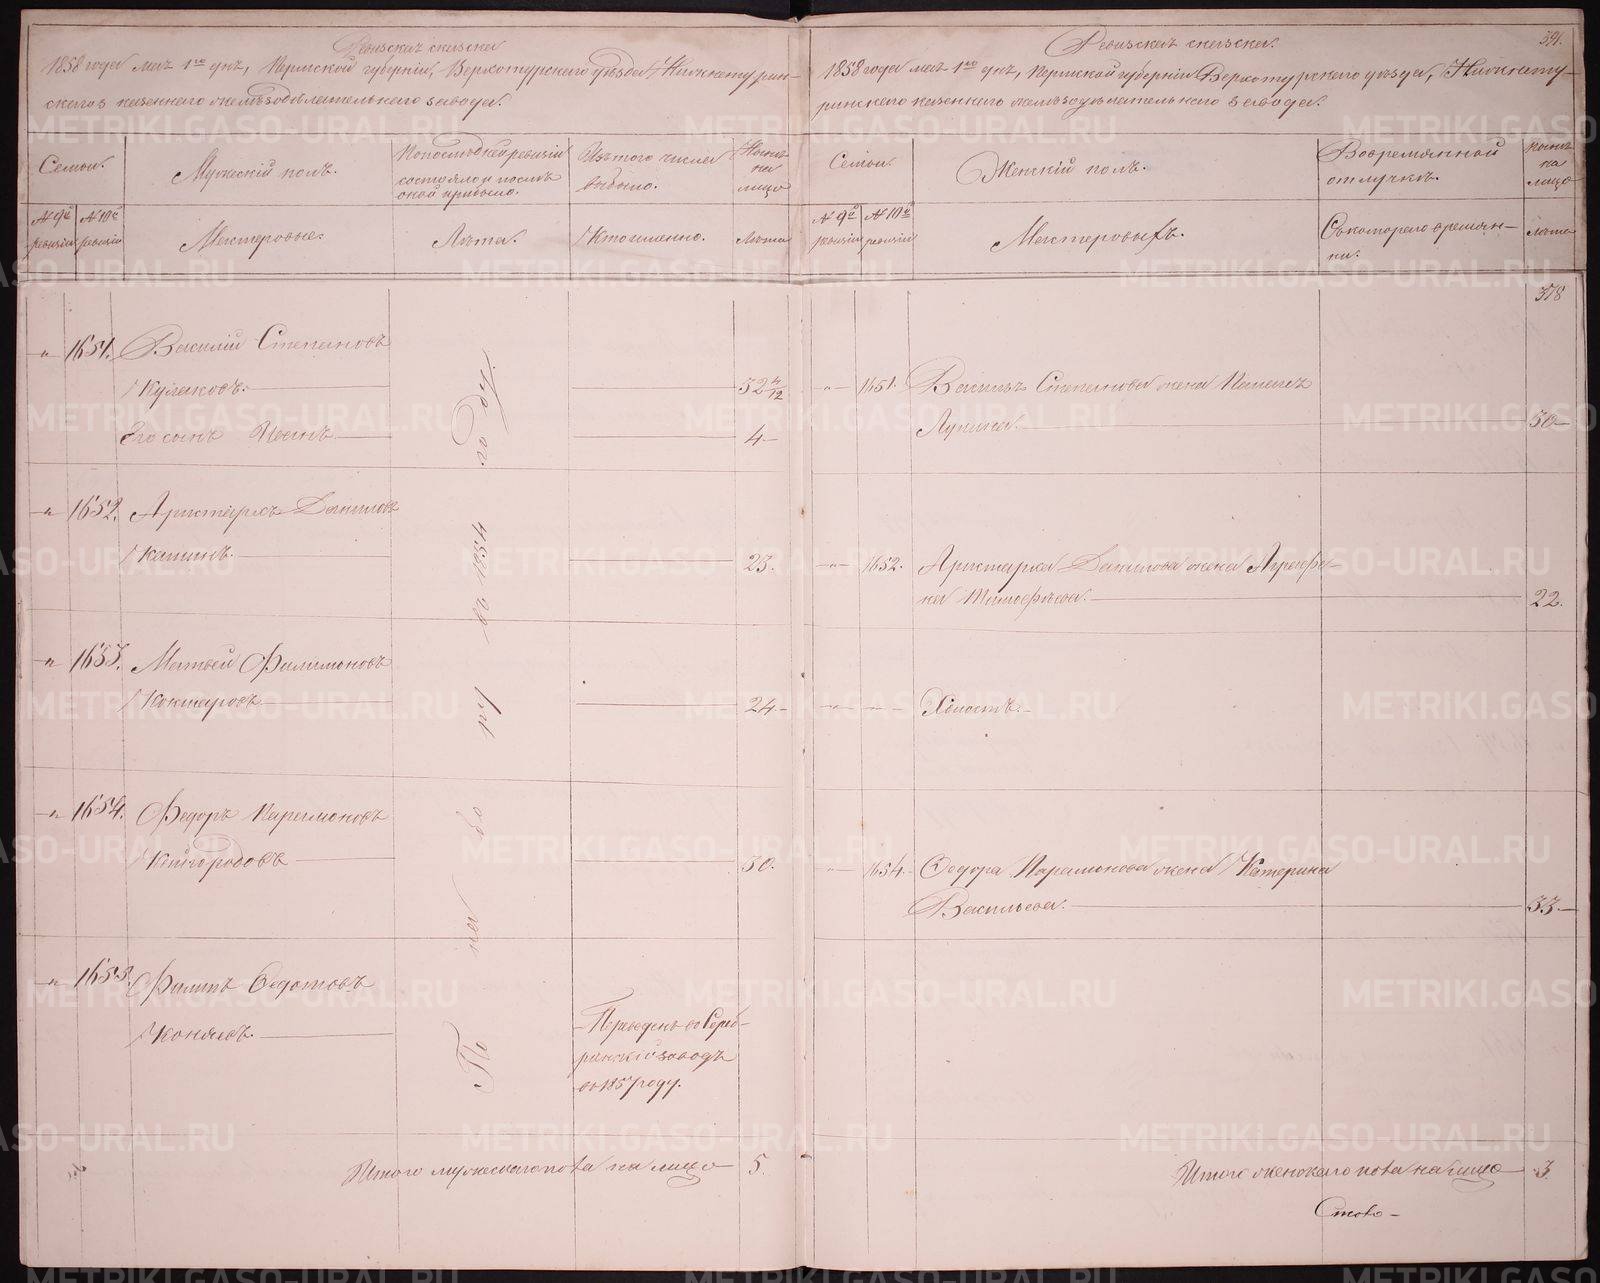 Ревизская сказка
1858 года мая 1го дня, Пермской губерніи, Верхотурского уѣзда, Нижнетурин-
скаго казеннаго желѣзодѣлательнаго завода.
Семьи.
Мужескій полъ.
По последней ревизіи
состояло и послѣ
оной прибыло.
Изъ того числа
выбыло.
Нынѣ
на
лицо
№ 9й
ревизіи
№ 10й
ревизіи
Мастеровые.
Лѣта.
Когда именно.
Лѣта
„ 1651. Василій Степановъ
Кулаковъ. 32 4/12
Его сынъ Иванъ 4
„ 1652. Аристархъ Даниловъ
23.
„ 1653. Матвей Филимоновъ
Кокшаровъ 24
„ 1654. Федоръ Парамоновъ
Кайгородовъ 30.
„ 1655. Филипъ Федотовъ
Коняевъ.
По на бо ру въ 1854 году.
Переведенъ въ Сереб-
рянскій заводъ
въ 1857 году.
Итого мужескаго пола на лицо 5.
391.
Ревизская сказка.
1858 года мая 1го дня, Пермской губерніи Верхотурскаго уѣзда, Нижнету-
ринскаго казеннаго желѣзодѣлательнаго завода.
Семьи.
Женскій полъ.
Во временной
отлучкѣ.
Нынѣ
на
лицо
№ 9й
ревизіи
№ 10й
ревизіи
Мастеровыхъ.
Съ котораго време-
ни.
Лѣта
378
„ 1651. Василья Степанова жена
30
„ 1652. Аристарха Данилова жена Агрефе-
на Тимофѣева. 22.
Холостъ.
„ 1654. Федора Парамонова жена Катерина
Васильева. 33.
Итого женскаго пола на лицо 3.